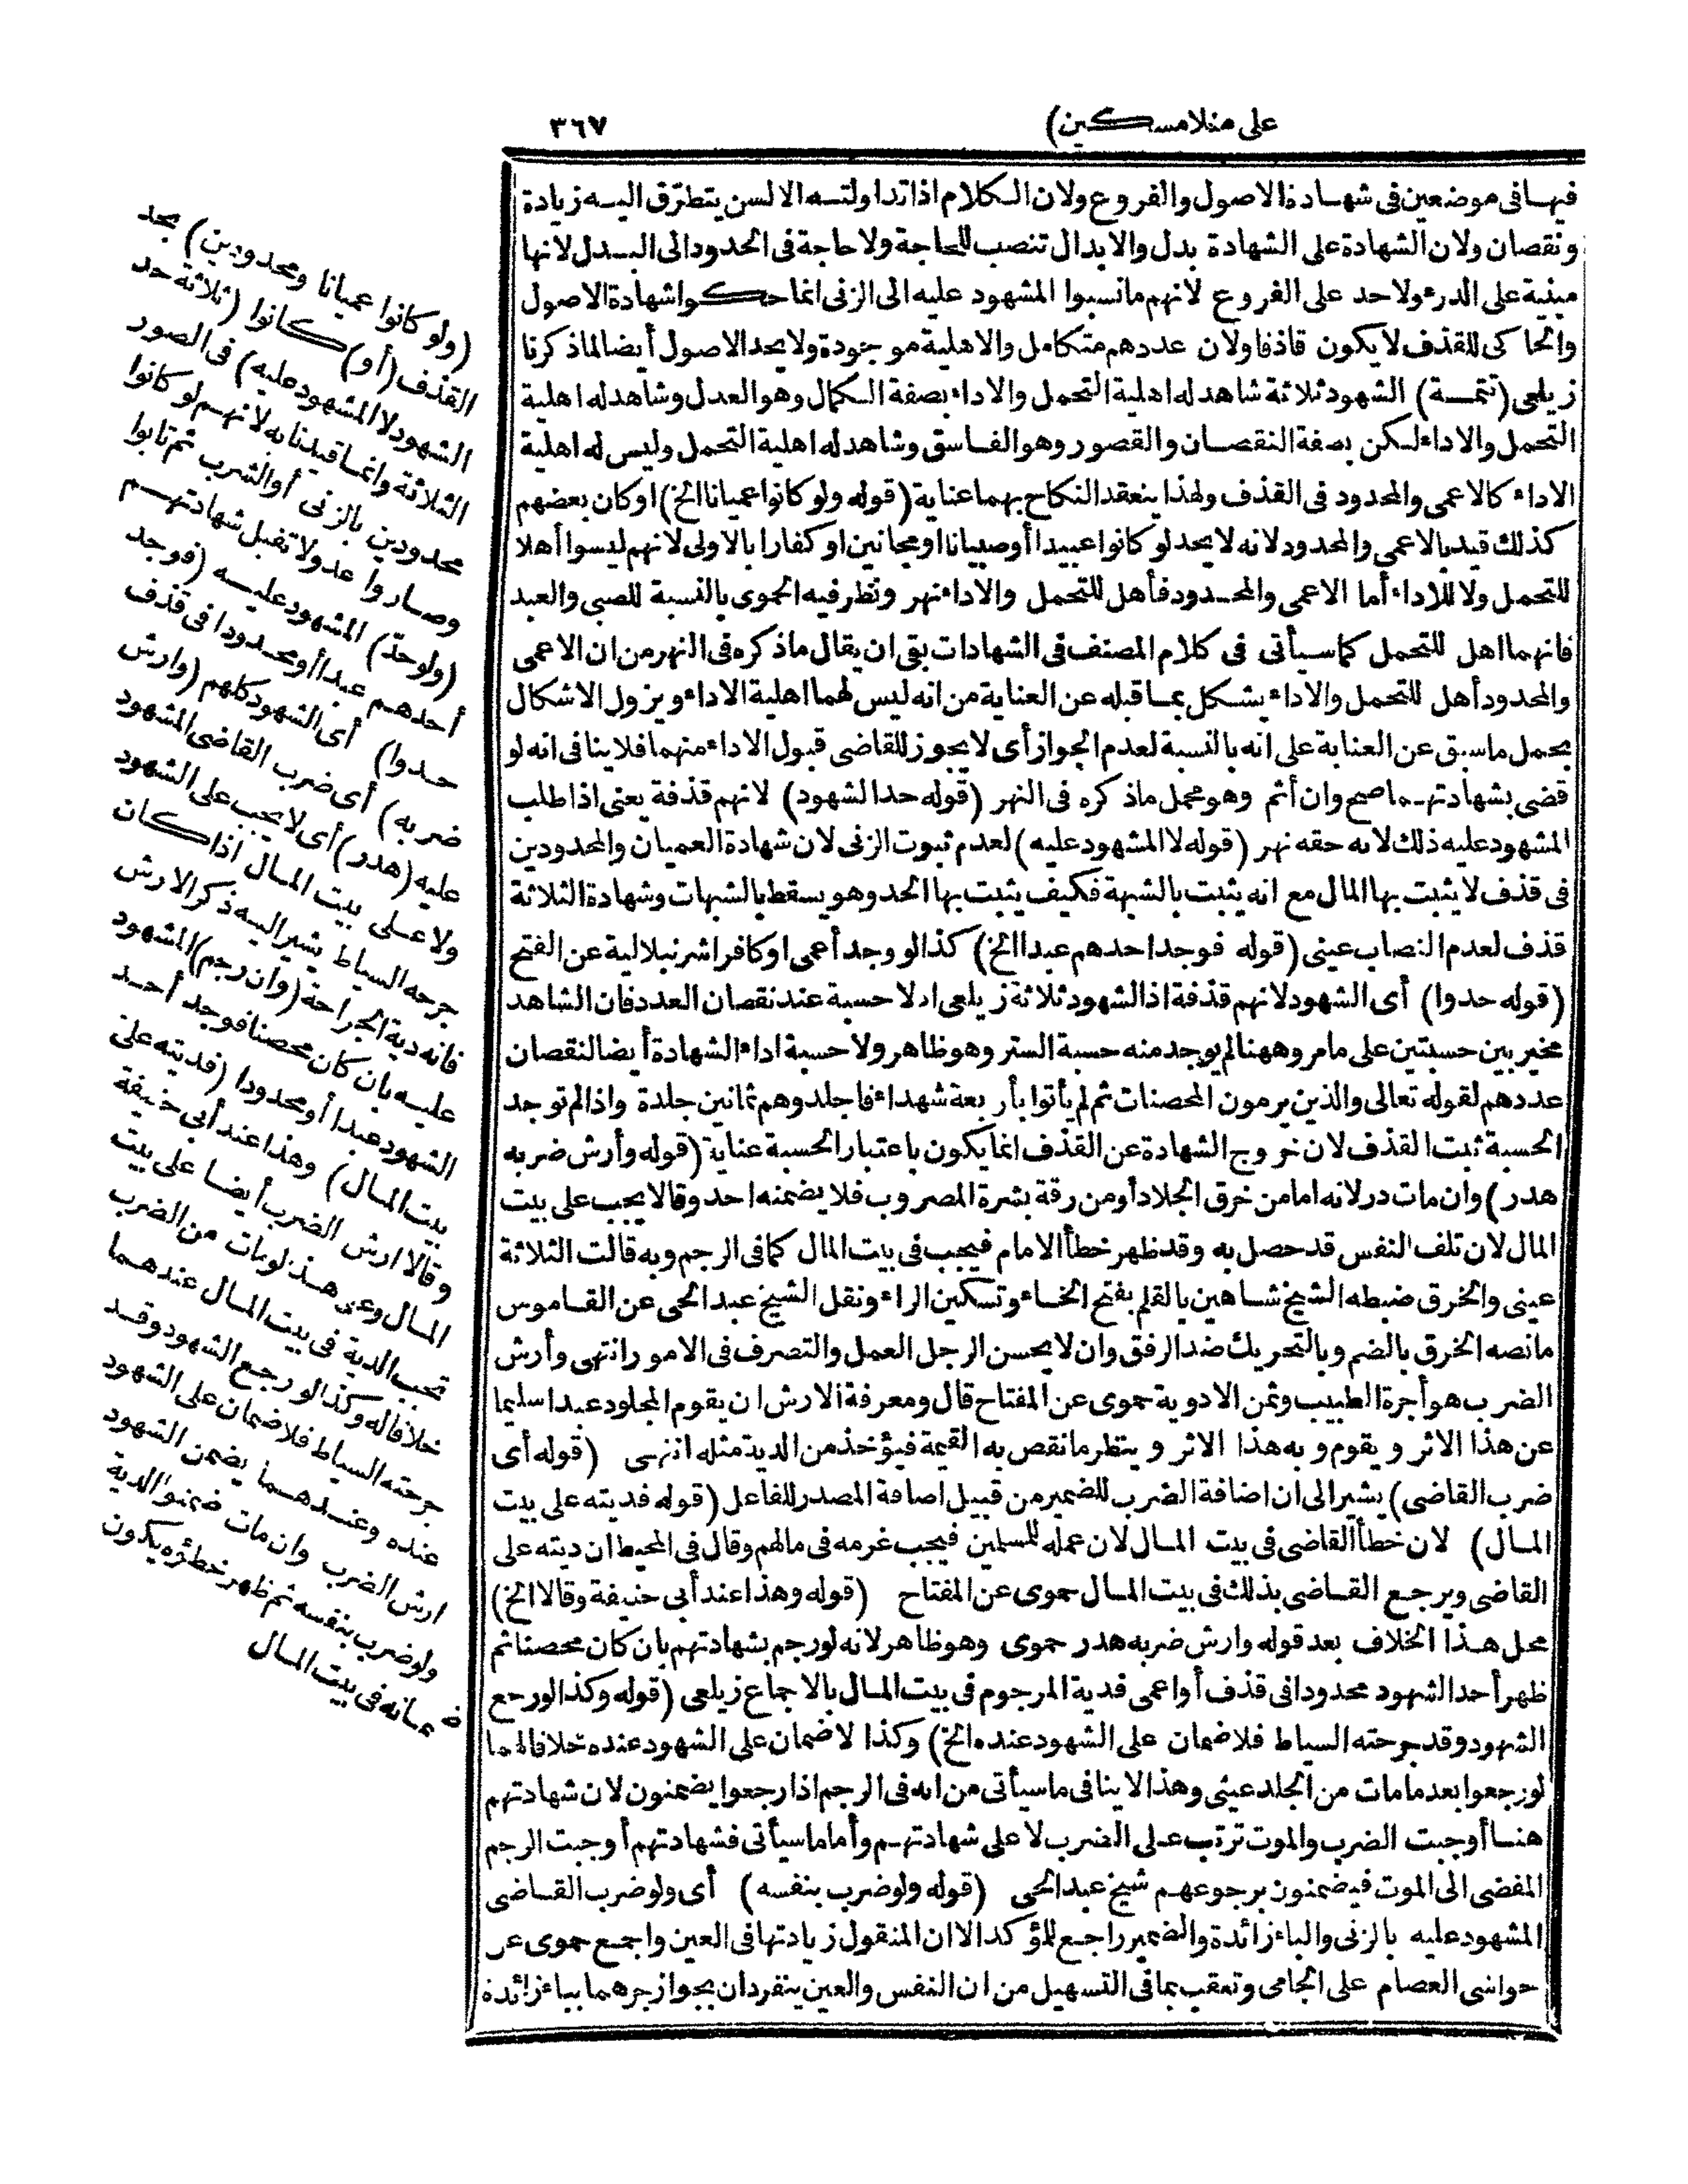 على منلا مسكين)
٣٦٧
فيها فى موضعين فى شهادة الاصول والفروع ولان الكلام اذا تداولته الالسن يتطرّق اليه زيادة
ونقصان ولان الشهادة على الشهادة بدل والابدال تنصب للحاجة ولا حاجة فى الحدود الى البدل لانها
مبنية على الدرء ولا حد على الفروع لانهم مانسبوا المشهود عليه الى الزنى انما حكوا شهادة الاصول
والحاكى للقذف لا يكون قاذفا ولان عددهم متكامل والاهلية موجودة ولا يحد الاصول أيضا لما ذكرنا
زيلعى (تتمة) الشهود ثلاثة شاهد له اهلية التحمل والاداء بصفة الكمال وهو العدل وشاهد له اهلية
التحمل والاداء لكن بصفة النقصان والقصور وهو الفاسق وشاهد له اهلية التحمل وليس له اهلية
الاداء كالاعمى والمحدود فى القذف ولهذا ينعقد النكاح بهما عناية (قوله ولو كانوا عميانا الخ) او كان بعضهم
كذلك قيد بالاعمى والمحدود لانه لا يحد لو كانوا عبيدا أو صبيانا او مجانين او كفارا بالاولى لانهم ليسوا أهلا
للتحمل ولا للاداء أما الاعمى والمحدود فأهل للتحمل والاداء نهر ونظر فيه الحموى بالنسبة للصبى والعبد
فانهما اهل للتحمل كما سيأتى فى كلام المصنف فى الشهادات بقى ان يقال ماذكره فى النهر من ان الاعمى
والمحدود أهل للتحمل والاداء يشكل بما قبله عن العناية من انه ليس لهما اهلية الاداء ويزول الاشكال
بحمل ماسبق عن العناية على انه بالنسبة لعدم الجواز أى لا يجوز للقاضى قبول الاداء منهما فلا ينافى انه لو
قضى بشهادتهما صح وان أثم وهو محمل ماذكره فى النهر (قوله حد الشهود) لانهم قذفة يعنى اذا طلب
المشهود عليه ذلك لانه حقه نهر (قوله لا المشهود عليه) لعدم ثبوت الزنى لان شهادة العميان والمحدودين
فى قذف لا يثبت بها المال مع انه يثبت بالشبهة فكيف يثبت بها الحد وهو يسقط بالشبهات وشهادة الثلاثة
قذف لعدم النصاب عينى (قوله فوجد احدهم عبدا الخ) كذا لو وجد أعمى او كافرا شرنبلالية عن الفتح
(قوله حدوا) أى الشهود لانهم قذفة اذ الشهود ثلاثة زيلعى اذ لا حسبة عند نقصان العدد فان الشاهد
مخير بين حسبتين على مامر وههنا لم يوجد منه حسبة الستر وهو ظاهر ولا حسبة اداء الشهادة أيضا لنقصان
عددهم لقوله تعالى والذين يرمون المحصنات ثم لم يأتوا بأربعة شهداء فاجلدوهم ثمانين جلدة واذا لم توجد
الحسبة ثبت القذف لان خروج الشهادة عن القذف انما يكون باعتبار الحسبة عناية (قوله وأرش ضربه
هدر) وان مات در لانه اما من خرق الجلاد أو من رقة بشرة المضروب فلا يضمنه احد وقالا يجب على بيت
المال لان تلف النفس قد حصل به وقد ظهر خطأ الامام فيجب فى بيت المال كما فى الرجم وبه قالت الثلاثة
عينى والخرق ضبطه الشيخ شاهين بالقلم بفتح الخاء وتسكين الراء ونقل الشيخ عبد الحى عن القاموس
مانصه الخرق بالضم وبالتحريك ضد الرفق وان لا يحسن الرجل العمل والتصرف فى الامور انتهى وأرش
الضرب هو أجرة الطبيب وثمن الادوية حموى عن المفتاح قال ومعرفة الارش ان يقوم المجلود عبدا سليما
عن هذا الاثر ويقوم وبه هذا الاثر وينظر مانقص به القيمة فيؤخذ من الدية مثله انتهى (قوله أى
ضرب القاضى) يشير الى ان اضافة الضرب للضمير من قبيل اضافة المصدر للفاعل (قوله فديته على بيت
المال) لان خطأ القاضى فى بيت المال لان عمله للمسلمين فيجب غرمه فى مالهم وقال فى المحيط ان ديته على
القاضى ويرجع القاضى بذلك فى بيت المال حموى عن المفتاح (قوله وهذا عند أبى حنيفة وقالا الخ)
محل هذا الخلاف بعد قوله وارش ضربه هدر حموى وهو ظاهر لانه لو رجم بشهادتهم بان كان محصنا ثم
ظهر أحد الشهود محدودا فى قذف أو اعمى فدية المرجوم فى بيت المال بالاجماع زيلعى (قوله وكذا لو رجع
الشهود وقد جرحته السياط فلا ضمان على الشهود عنده الخ) وكذا لا ضمان على الشهود عنده خلافا لهما
لو رجعوا بعد مامات من الجلد عينى وهذا لا ينافى ماسيأتى من انه فى الرجم اذا رجعوا يضمنون لان شهادتهم
هنا أوجبت الضرب والموت ترتب على الضرب لا على شهادتهم وأما ماسيأتى فشهادتهم أوجبت الرجم
المفضى الى الموت فيضمنون برجوعهم شيخ عبد الحى (قوله ولو ضرب بنفسه) أى ولو ضرب القاضى
المشهود عليه بالزنى والباء زائدة والضمير راجع للمؤكد الا ان المنقول زيادتها فى العين واجمع حموى عن
حواشى العصام على الجامى وتعقب بما فى التسهيل من ان النفس والعين ينفردان بجواز جرهما بباء زائدة
(ولو كانوا عميانا ومحدودين) بحد
القذف (أو) كانوا (ثلاثة حد
الشهود لا المشهود عليه) فى الصور
الثلاثة وانما قيدنا به لانهم لو كانوا
محدودين بالزنى أو الشرب ثم تابوا
وصاروا عدولا تقبل شهادتهم
(ولو حدّ) المشهود عليه (فوجد
أحدهم عبدا أو محدودا فى قذف
حدوا) أى الشهود كلهم (وارش
ضربه) أى ضرب القاضى المشهود
عليه (هدر) أى لا يجب على الشهود
ولا على بيت المال اذا كان
جرحه السياط يشير اليه ذكر الارش
فانه دية الجراحة (وان رجم) المشهود
عليه بان كان محصنا فوجد أحد
الشهود عبدا أو محدودا (فديته على
بيت المال) وهذا عند أبى حنيفة
وقالا ارش الضرب أيضا على بيت
المال وعى هذا لو مات من الضرب
تجب الدية فى بيت المال عندهما
خلافا له وكذا لو رجع الشهود وقد
جرحته السياط فلا ضمان على الشهود
عنده وعندهما يضمن الشهود
ارش الضرب وان مات ضمنوا الدية
ولو ضرب بنفسه ثم ظهر خطؤه يكون
ضمانه فى بيت المال